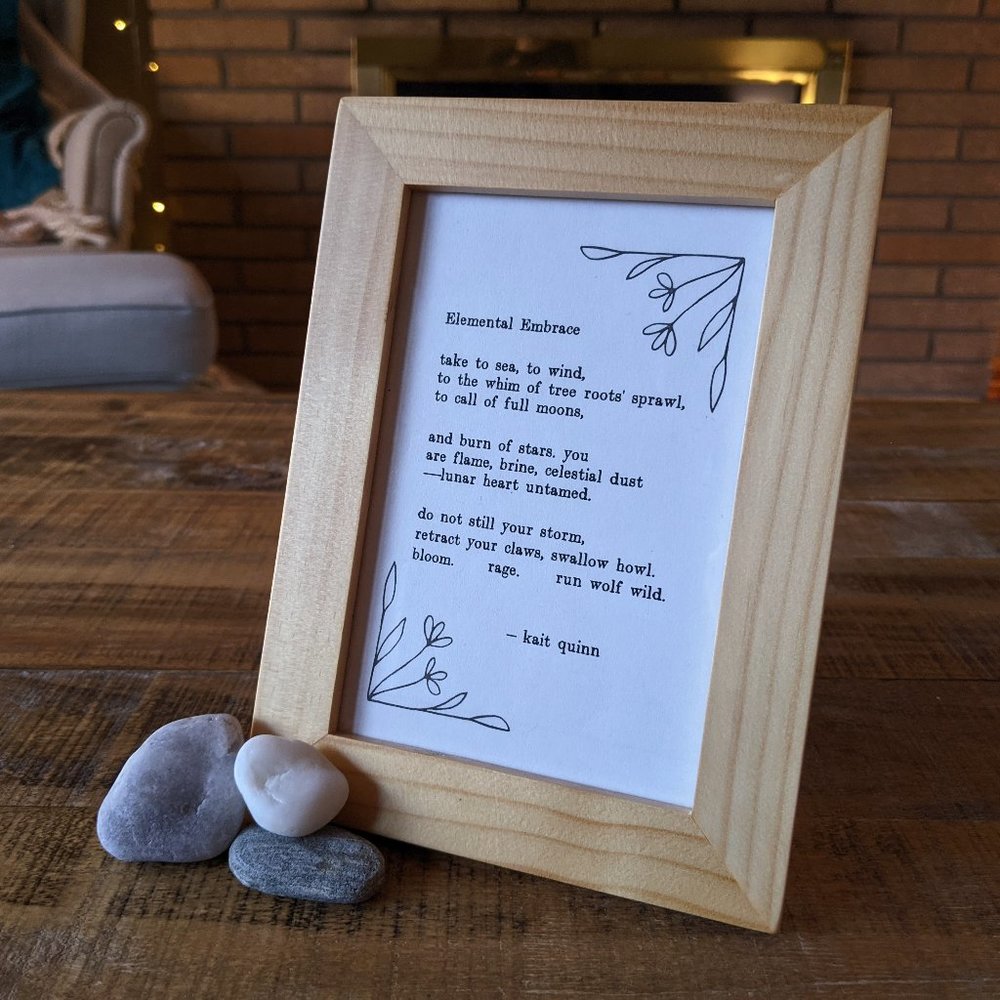 Elemental Embrace
take to sea, to wind,
to the whim of tree roots' sprawl,
to call of full moons,
and burn of stars. you
are flame, brine, celestial dust
—lunar heart untamed.
do not still your storm,
retract your claws, swallow howl.
bloom. rage. run wolf wild.
– kait quinn